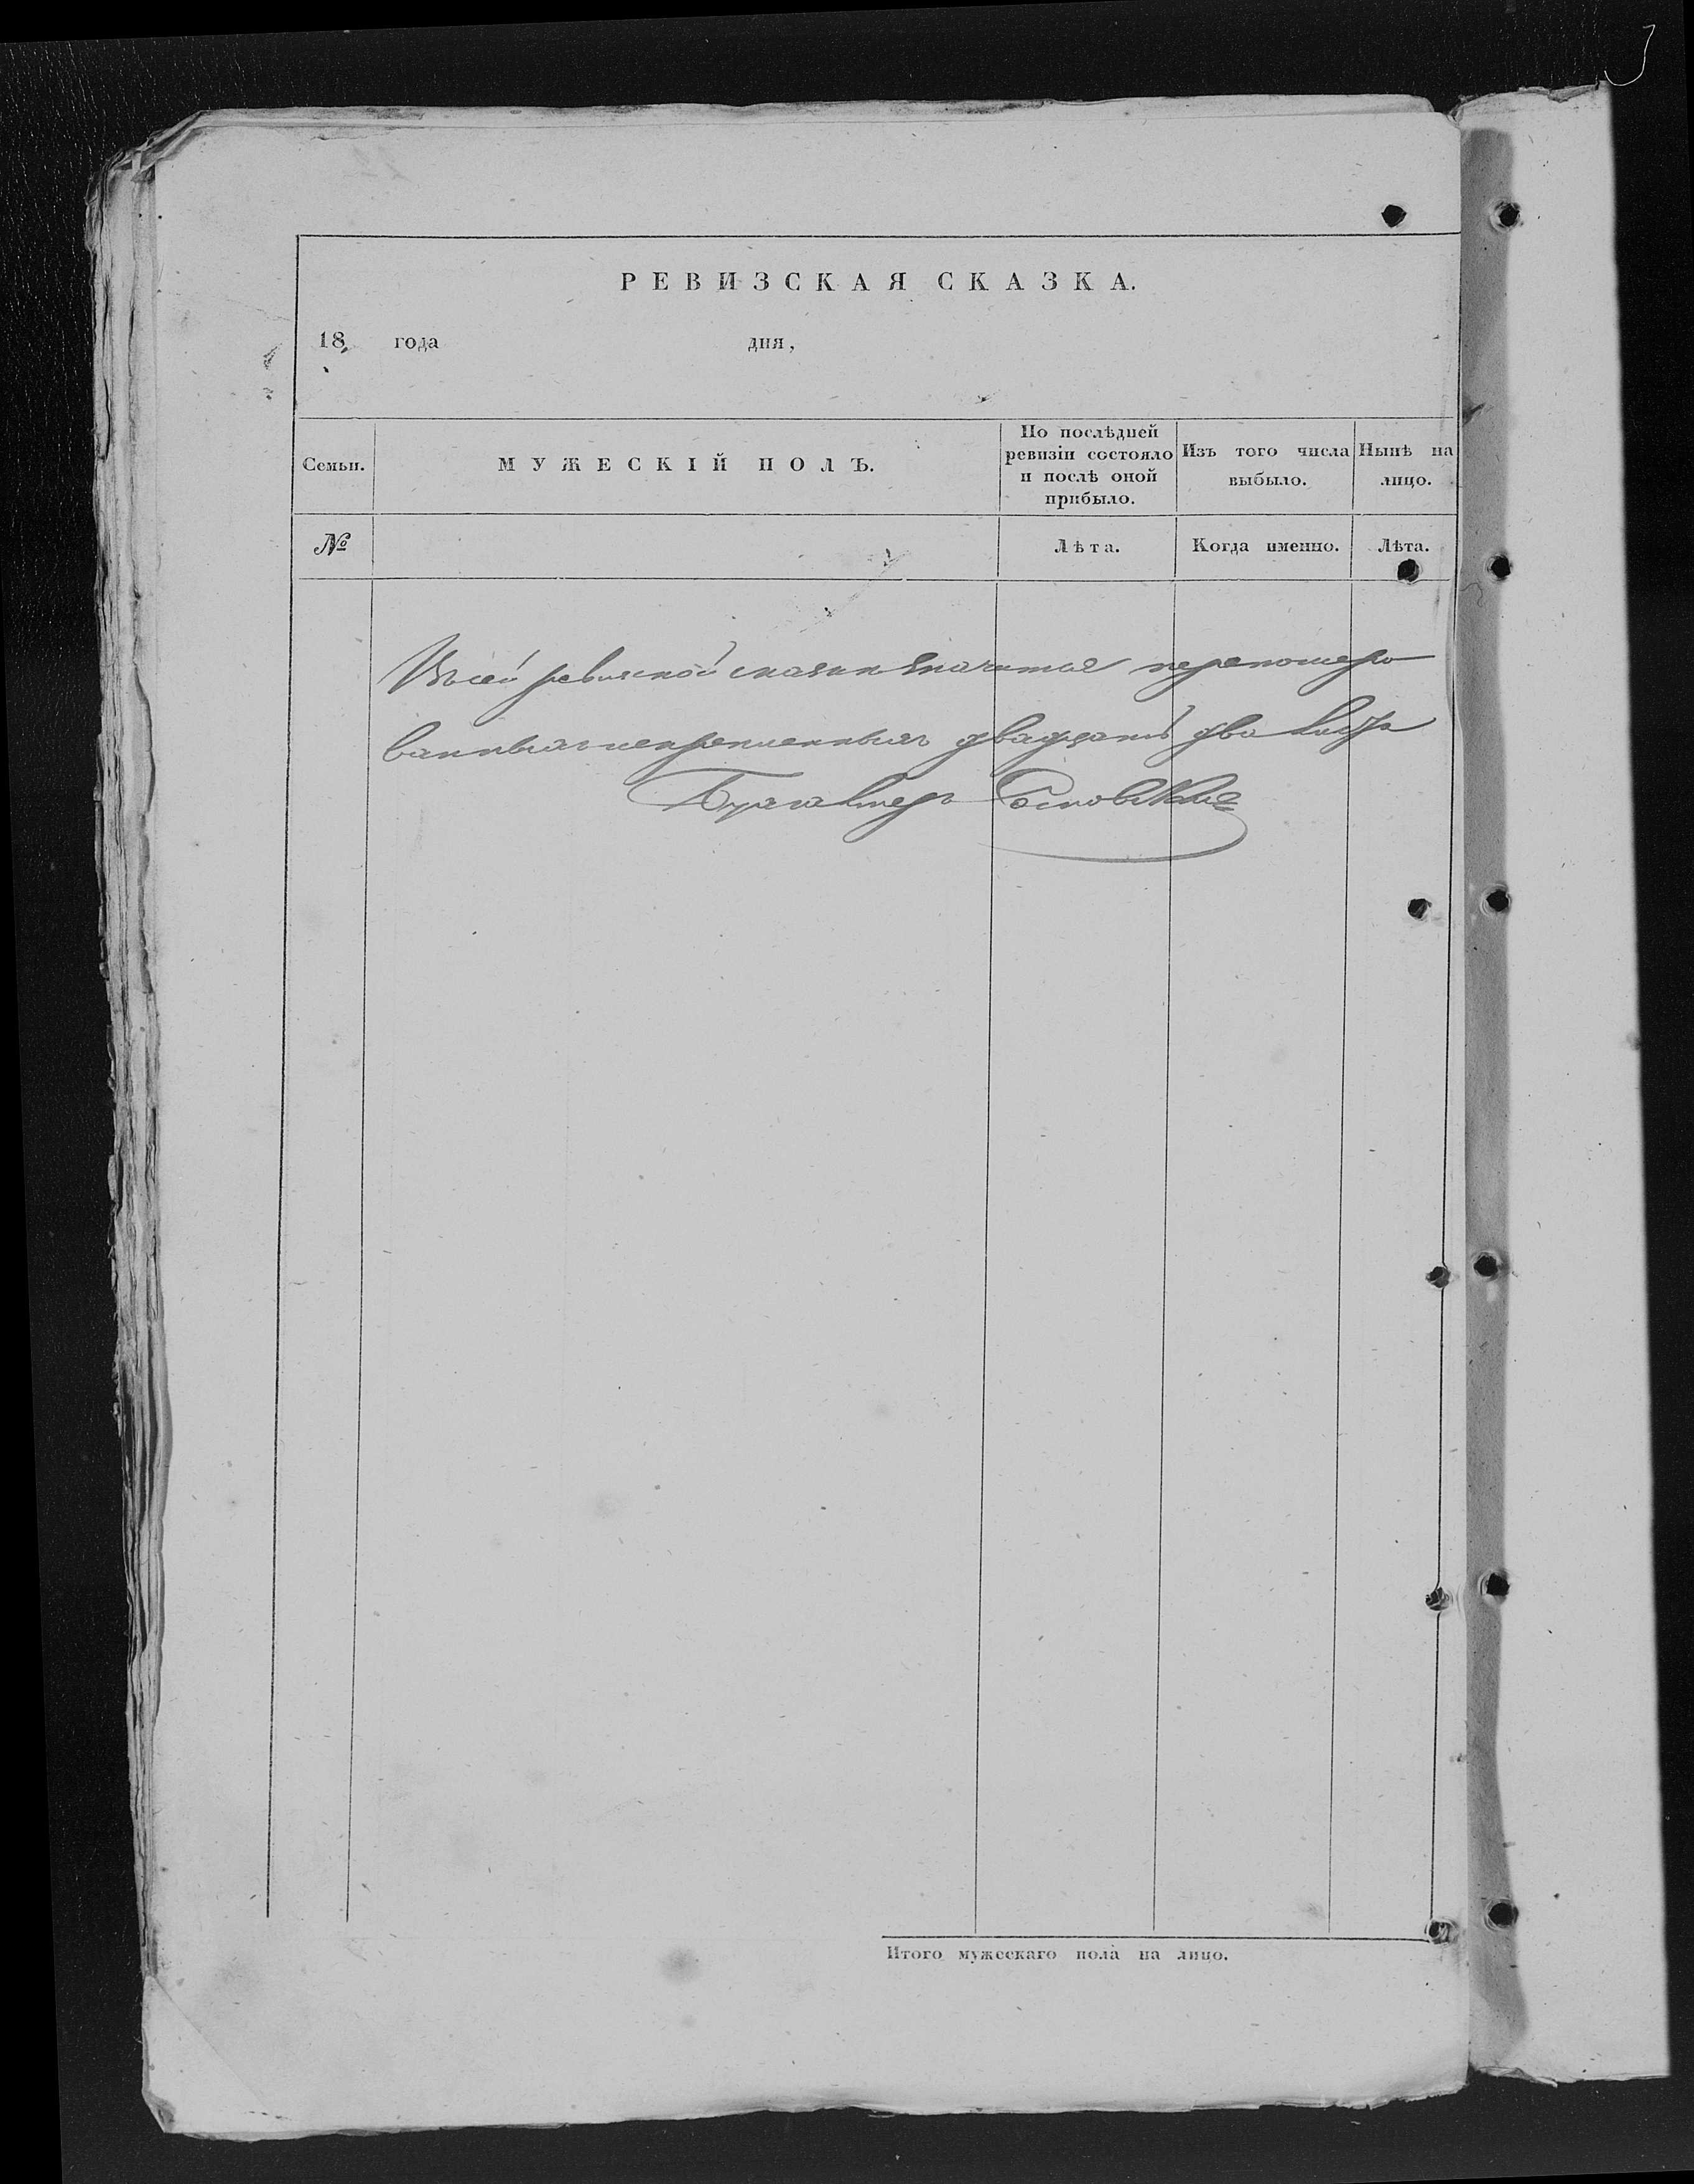 РЕВИЗСКАЯ СКАЗКА.
18 года дня,
Семьи.
МУЖЕСКІЙ ПОЛЪ.
По послѣдней
ревизіи состояло
и послѣ оной
прибыло.
Изъ того числа
выбыло.
Нынѣ на
лицо.
№
Лѣта.
Когда именно.
Лѣта.
Въ сей ревизской сказки значится переномеро
ванныхъ двадцать два листа
Бухгалтеръ
Итого мужескаго пола на лицо.